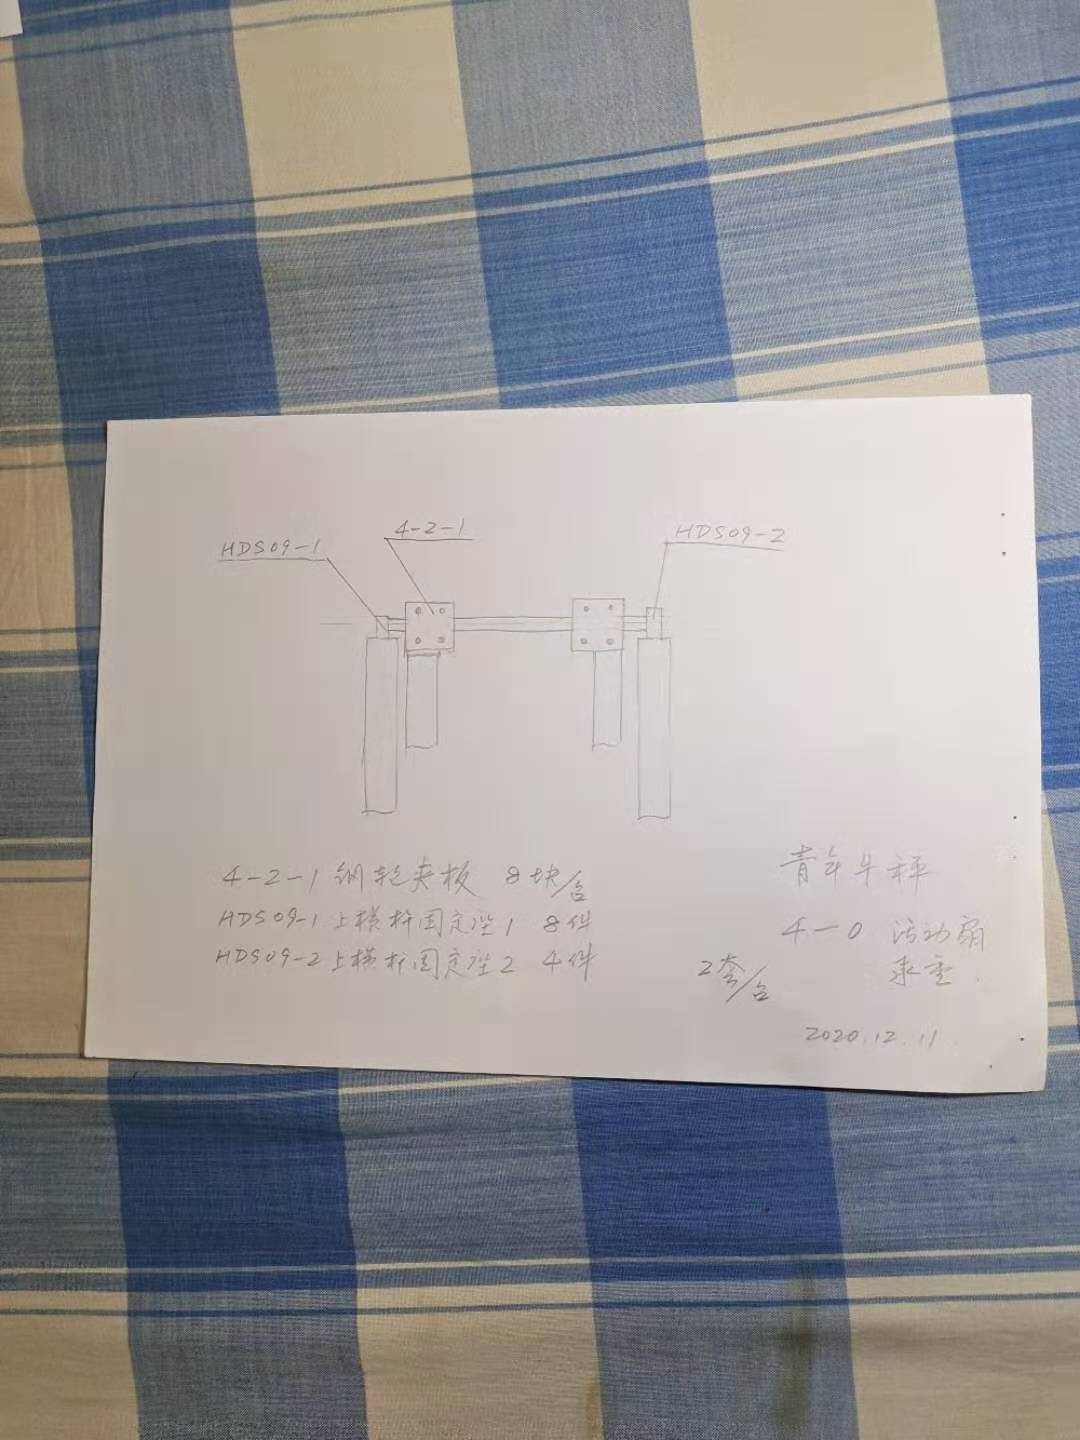 HDS09-1
4-2-1
HDS09-2
4-2-1 钢轮夹板 8块/台
HDS09-1 上横杆固定 1 8件
HDS09-2 上横杆固定 2 4件
2套/台
青年牛秤
4-0 活动扇
承重
2020.12.11